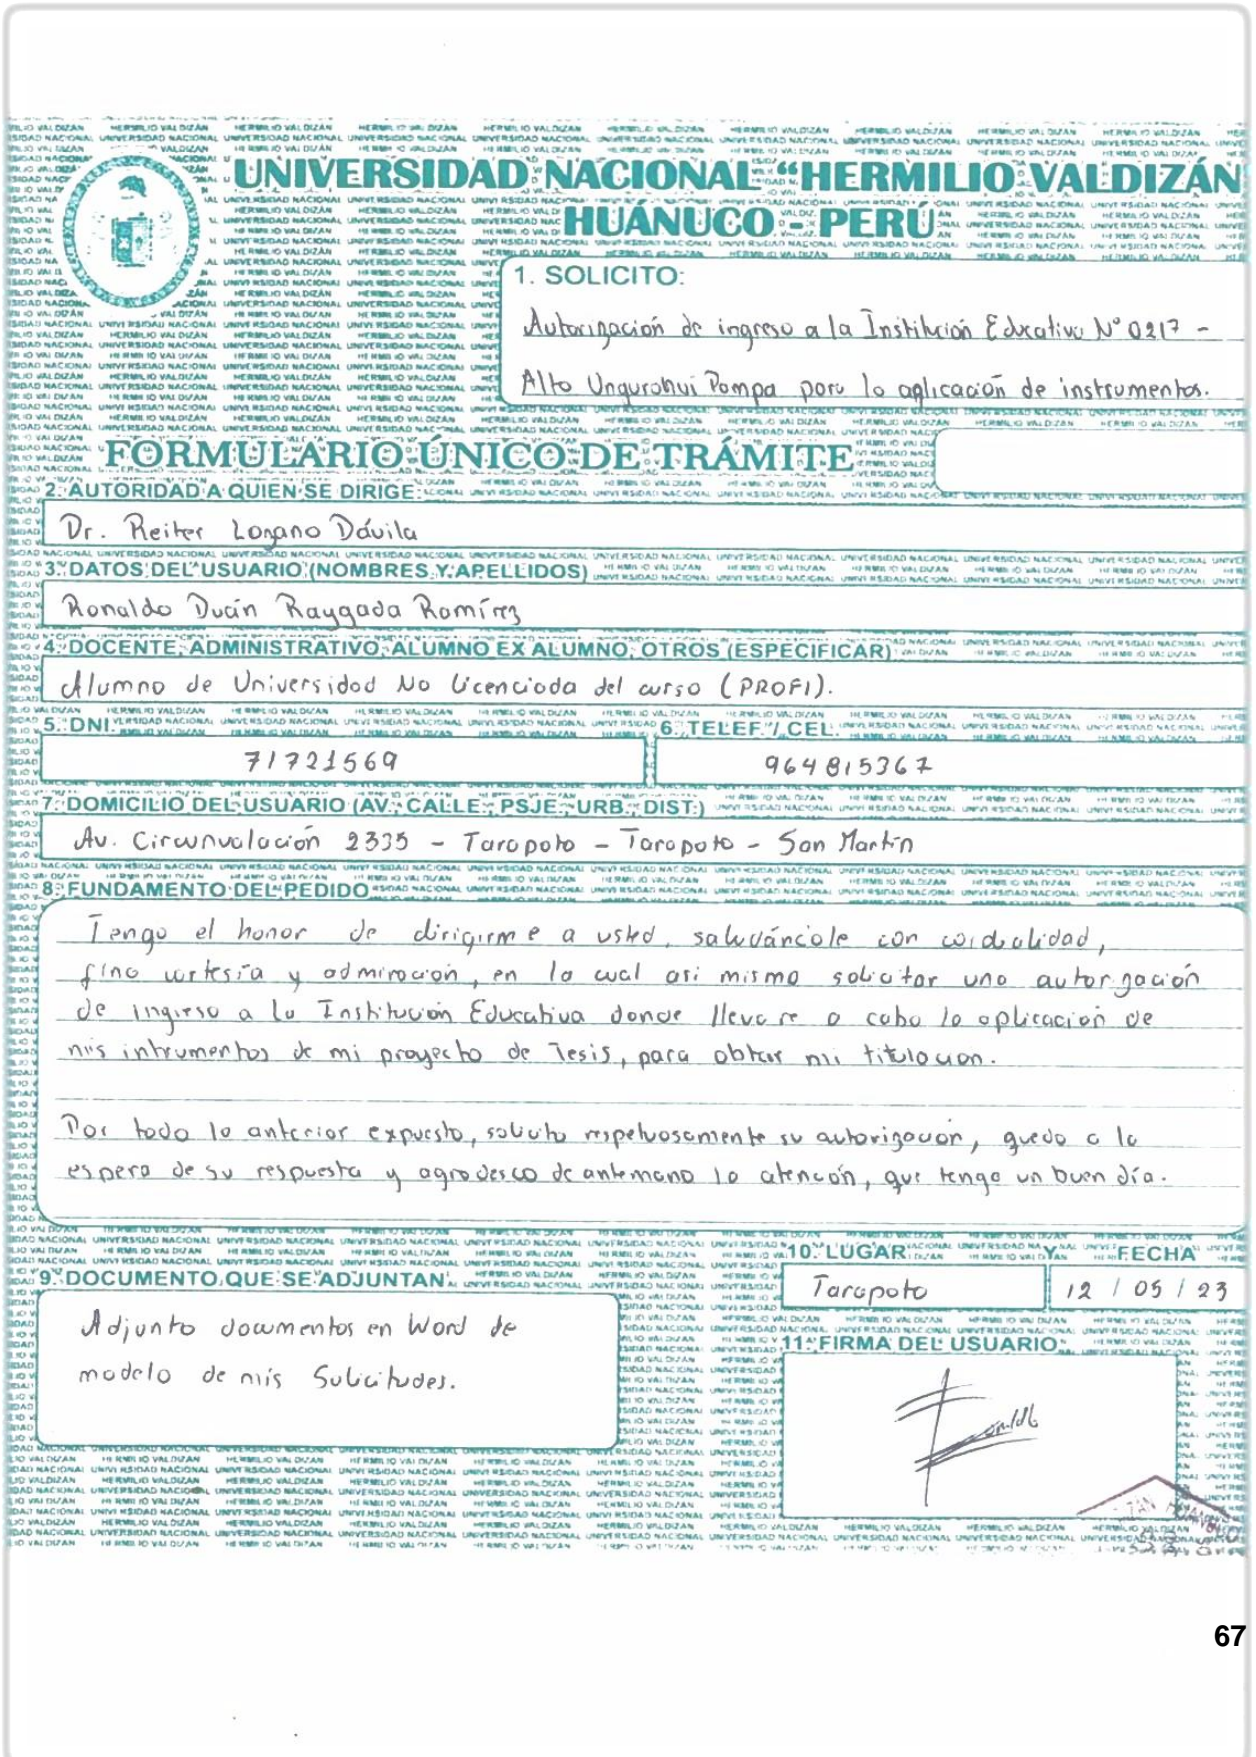 UNIVERSIDAD NACIONAL “HERMILIO VALDIZÁN
HUÁNUCO - PERÚ
1. SOLICITO:
Autorización de ingreso a la Institución Educativa N° 0217 -
Alto Ungurahui Pampa para la aplicación de instrumentos.
FORMULARIO ÚNICO DE TRÁMITE
2. AUTORIDAD A QUIEN SE DIRIGE:
Dr. Reiter Lozano Dávila
3. DATOS DEL USUARIO (NOMBRES Y APELLIDOS)
Ronaldo Ducán Raygada Ramírez
4. DOCENTE, ADMINISTRATIVO, ALUMNO EX ALUMNO, OTROS (ESPECIFICAR)
Alumno de Universidad No Licenciada del curso (PROFI).
5. DNI 6. TELEF. / CEL.
71721569 964815367
7. DOMICILIO DEL USUARIO (AV., CALLE, PSJE, URB., DIST.)
Av. Circunvalación 2335 - Tarapoto - Tarapoto - San Martín
8. FUNDAMENTO DEL PEDIDO
Tengo el honor de dirigirme a usted, saludáncole con cordialidad,
fina cortesía y admiración, en la cual asi mismo solicitar una autorización
de ingreso a la Institución Educativa donde llevare a cabo la aplicación de
mis intrumentos de mi proyecto de Tesis, para obtener mi titulacion.
Por todo lo anterior expuesto, solicito respetuosamente su autorización, quedo a la
espera de su respuesta y agradesco de antemano la atención, que tenga un buen día.
10. LUGAR Y FECHA
9. DOCUMENTO QUE SE ADJUNTAN
Tarapoto 12 / 05 / 23
Adjunto documentos en Word de
modelo de mis Solicitudes.
11. FIRMA DEL USUARIO
67